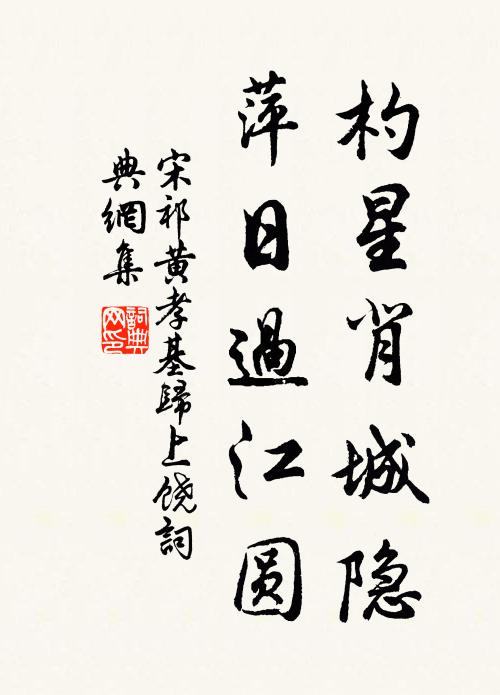 杓星背城隐
萍日過江圆
宋祁黄孝基歸上饶詞
典網集
詞典网印